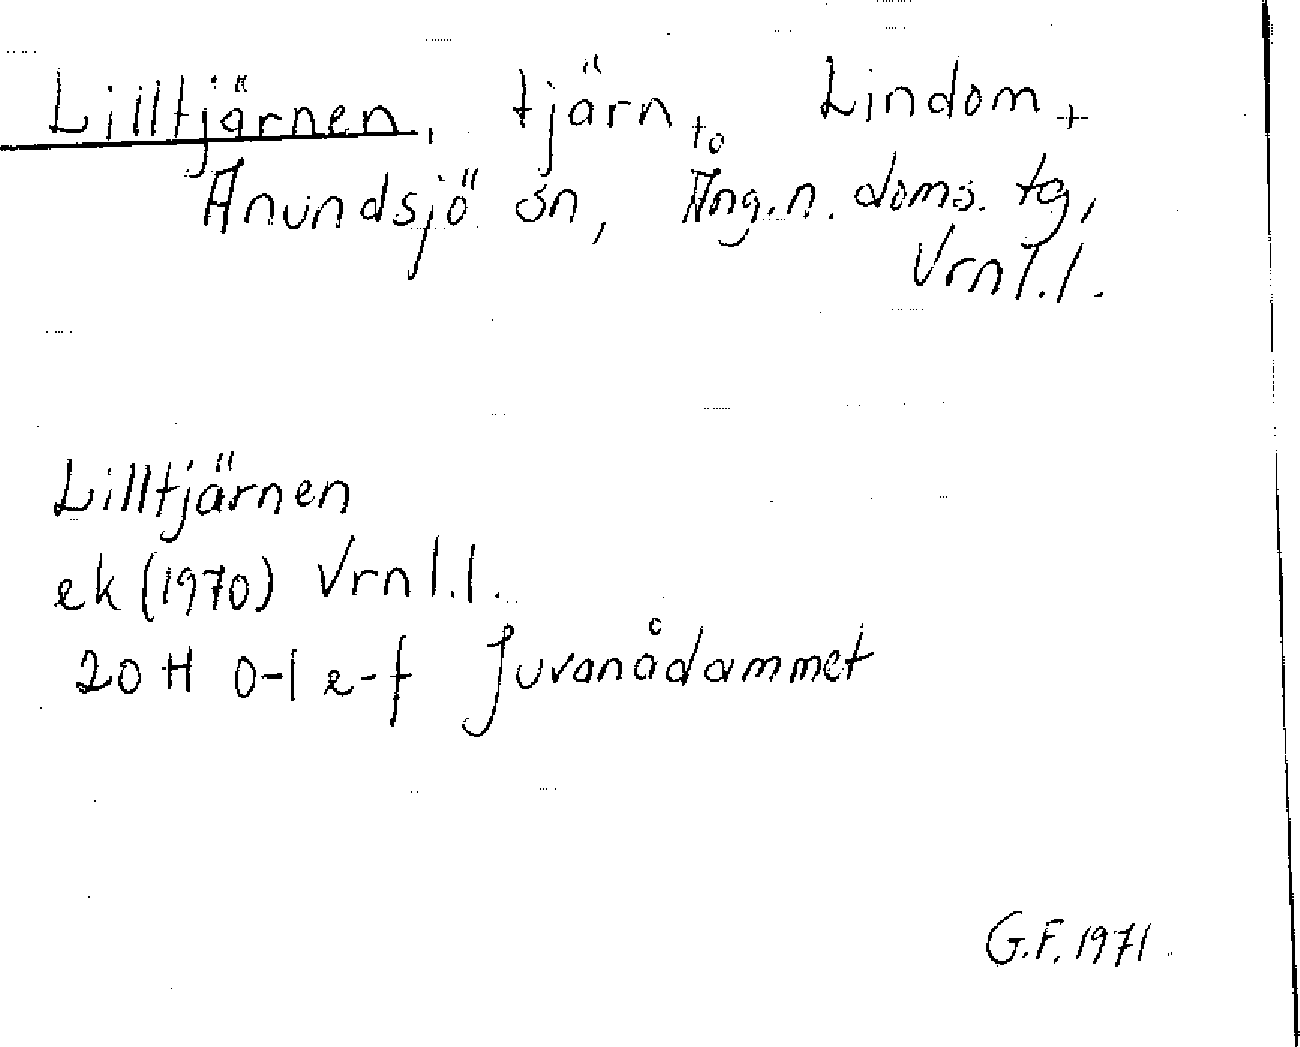 Lilltjärnen, tjärn, to Lindom +
Anundsjö sn, Ång.n. doms. tg,
Vrnl.l.
Lilltjärnen
ek (1970) Vrnl.l.
20 H 0-1 e-f Juvanådammet
G.F. 1971.